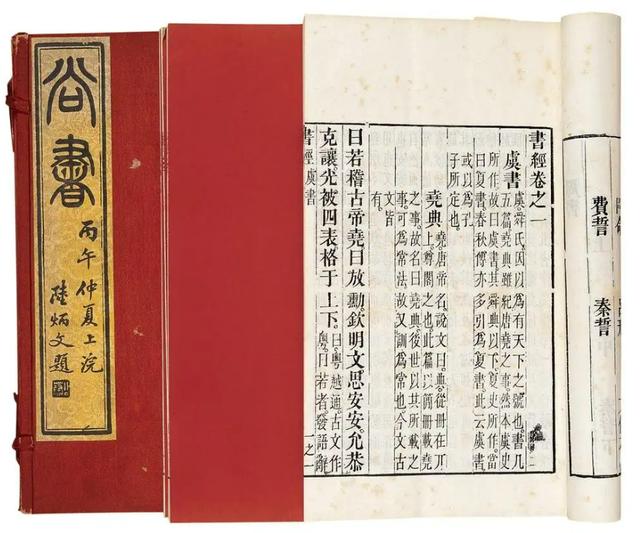 尚書
丙午仲夏上浣
陸炳文題
費誓
秦誓
書經卷之一
虞書
虞舜氏因以為有天下之號也書凡
五篇堯典雖紀唐堯之事然本虞史
所作故曰虞書其舜典以下夏史所作當
曰夏書春秋傳亦多引為夏書此云虞書
或以為孔
子所定也
堯典
堯唐帝名說文曰典從冊在丌
上尊閣之也此篇以簡冊載堯
之事故名曰堯典後世以其所載之
事可為常法故又訓為常也今文古
文皆
有
曰若稽古帝堯曰放勳欽明文思安安允恭
克讓光被四表格于上下
曰粵越通古文作
粵曰若者發語辭
書經虞書
一之一